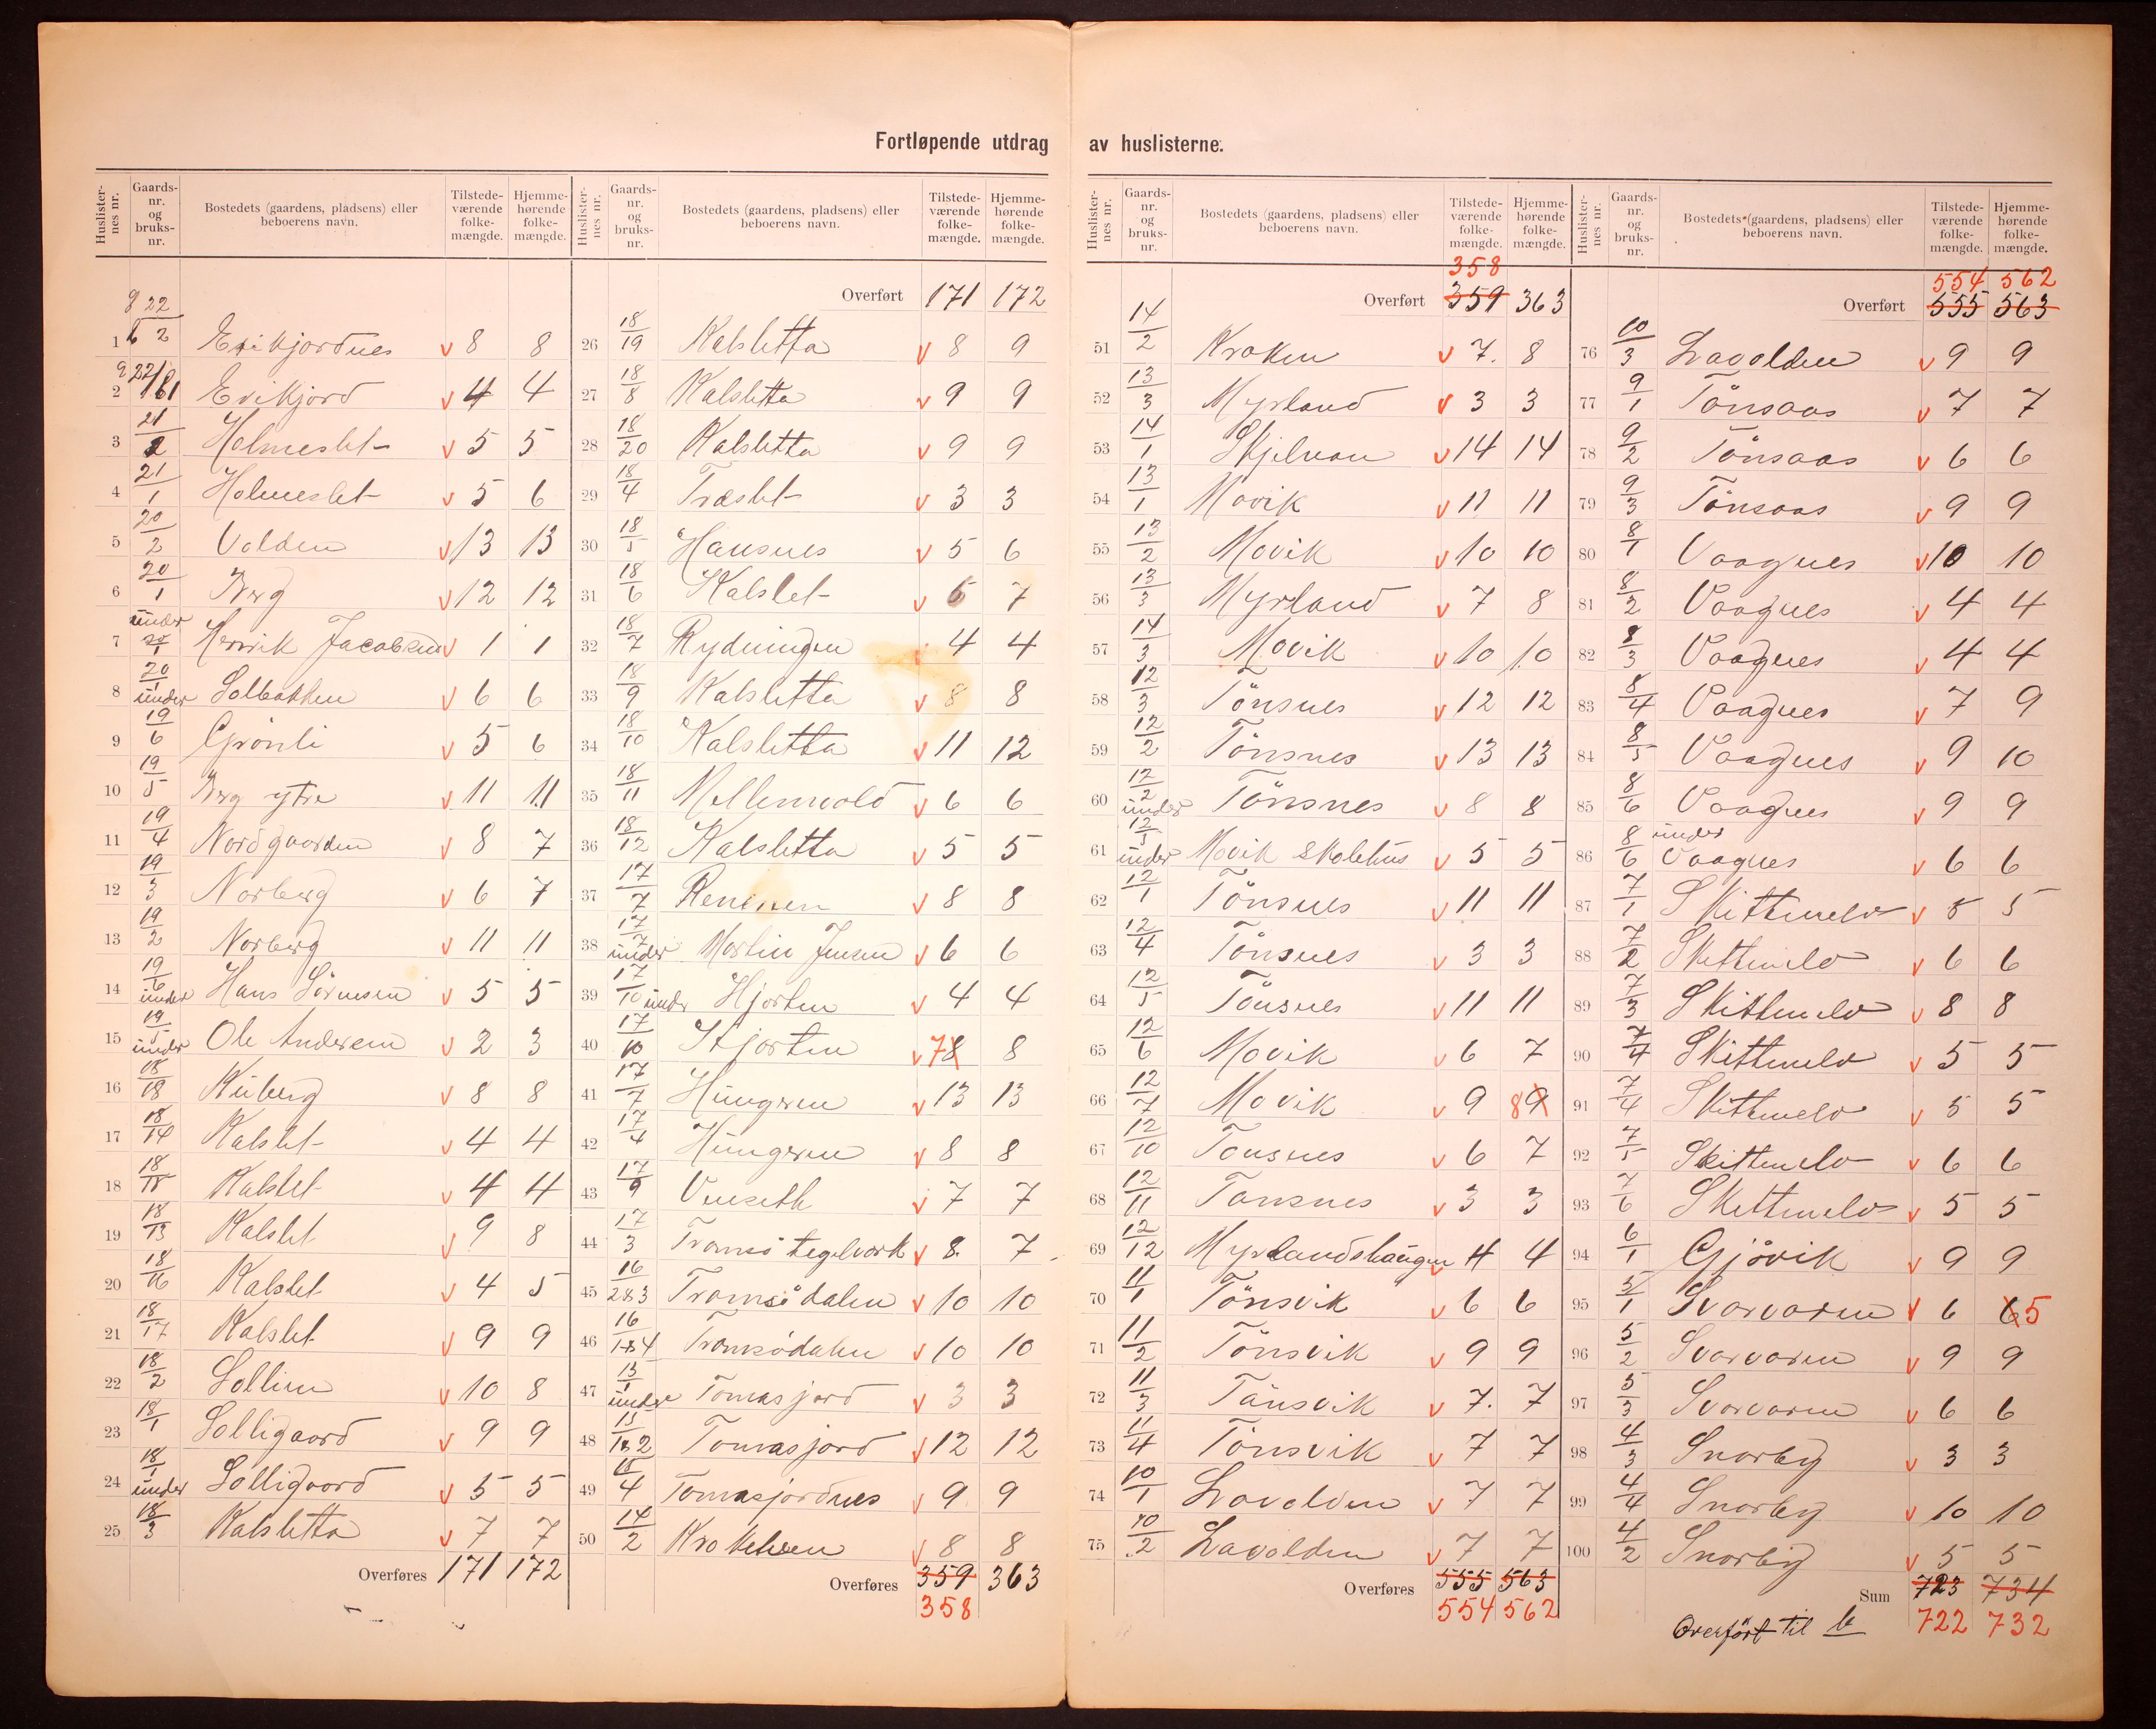 Fortløpende utdrag av huslisterne.
Huslister-nes nr. | Gaards-nr. og bruks-nr. | Bostedets (gaardens, pladsens) eller beboerens navn. | Tilstede-værende folke-mængde. | Hjemme-hørende folke-mængde.
1 22/2 Evikjordnes v 8 8
2 22/1 Evikjord v 4 4
3 21/2 Holmeslet v 5 5
4 21/1 Holmeslet v 5 6
5 20/2 Valden v 13 13
6 20/1 Berg v 12 12
7 under 20/1 Henrik Jacobsen v 1 1
8 20/1 under Solbakken v 6 6
9 19/6 Grönli v 5 6
10 19/5 Berg ytre v 11 11
11 19/4 Nordgaarden v 8 7
12 19/3 Norberg v 6 7
13 19/2 Norberg v 11 11
14 19/6 under Hans Sörensen v 5 5
15 19/5 under Ole Andersen v 2 3
16 18/18 Niberg v 8 8
17 18/14 Kalslet v 4 4
18 18/15 Kalslet v 4 4
19 18/13 Kalslet v 9 8
20 18/16 Kalslet v 4 5
21 18/17 Kalslet v 9 9
22 18/2 Sollien v 10 8
23 18/1 Solligaard v 9 9
24 18/1 under Solligaard v 5 5
25 18/3 Kalsletta v 7 7
Overføres 171 172
Huslister-nes nr. | Gaards-nr. og bruks-nr. | Bostedets (gaardens, pladsens) eller beboerens navn. | Tilstede-værende folke-mængde. | Hjemme-hørende folke-mængde.
Overført 171 172
26 18/19 Kalsletta v 8 9
27 18/8 Kalsletta v 9 9
28 18/20 Kalsletta v 9 9
29 18/4 Træslet v 3 3
30 18/5 Hansnes v 5 6
31 18/6 Kalslet v 6 7
32 18/7 Rydningen 4 4
33 18/9 Kalsletta v 8 8
34 18/10 Kalsletta v 11 12
35 18/11 Mellemvold v 6 6
36 18/12 Kalsletta v 5 5
37 17/7 Reninen v 8 8
38 17/7 under Martin Jensen v 6 6
39 17/10 under Hjorten v 4 4
40 17/10 Hjorten v 7 8 8
41 17/7 Hungeren v 13 13
42 17/4 Hungeren v 8 8
43 17/9 Vinseth v 7 7
44 17/3 Tromsö teglverk v 8 7
45 16/2&3 Tromsödalen v 10 10
46 16/1&4 Tromsödalen v 10 10
47 15/1 under Tomasjord v 3 3
48 15/1&2 Tomasjord v 12 12
49 15/4 Tomasjordnes v 9 9
50 14/2 Krokelven v 8 8
Overføres 359 363
358
Huslister-nes nr. | Gaards-nr. og bruks-nr. | Bostedets (gaardens, pladsens) eller beboerens navn. | Tilstede-værende folke-mængde. | Hjemme-hørende folke-mængde.
358
Overført 359 363
51 14/2 Kroken v 7 8
52 13/3 Myrland v 3 3
53 14/1 Skjelnan v 14 14
54 13/1 Movik v 11 11
55 13/2 Movik v 10 10
56 13/3 Myrland v 7 8
57 14/3 Movik v 10 10
58 12/3 Tönsnes v 12 12
59 12/2 Tönsnes v 13 13
60 12/2 under Tönsnes v 8 8
61 12/5 under Movik Skolehus v 5 5
62 12/1 Tönsnes v 11 11
63 12/4 Tönsnes v 3 3
64 12/5 Tönsnes v 11 11
65 12/6 Movik v 6 7
66 12/7 Movik v 9 8 9
67 12/10 Tonsnes v 6 7
68 12/11 Tonsnes v 3 3
69 12/12 Myrlandshaugen v 4 4
70 11/1 Tönsvik v 6 6
71 11/2 Tönsvik v 9 9
72 11/3 Tönsvik v 7 7
73 11/4 Tönsvik v 7 7
74 10/1 Lavolden v 7 7
75 10/2 Lavolden v 7 7
Overføres 555 563
554 562
Huslister-nes nr. | Gaards-nr. og bruks-nr. | Bostedets (gaardens, pladsens) eller beboerens navn. | Tilstede-værende folke-mængde. | Hjemme-hørende folke-mængde.
554 562
Overført 555 563
76 10/3 Lavolden v 9 9
77 9/1 Tönsaas v 7 7
78 9/2 Tönsaas v 6 6
79 9/3 Tönsaas v 9 9
80 8/1 Vaagnes v 10 10
81 8/2 Vaagnes v 4 4
82 8/3 Vaagnes v 4 4
83 8/4 Vaagnes v 7 9
84 8/5 Vaagnes v 9 10
85 8/6 Vaagnes v 9 9
86 8/6 under Vaagnes v 6 6
87 7/1 Skittenelv v 5 5
88 7/2 Skittenelv v 6 6
89 7/3 Skittenelv v 8 8
90 7/4 Skittenelv v 5 5
91 7/4 Skittenelv v 5 5
92 7/5 Skittenelv v 6 6
93 7/6 Skittenelv v 5 5
94 6/1 Gjövik v 9 9
95 5/1 Svarvaren v 6 6 5
96 5/2 Svarvaren v 9 9
97 5/3 Svarvaren v 6 6
98 4/3 Snarby v 3 3
99 4/4 Snarby v 10 10
100 4/2 Snarby v 5 5
Sum 723 734
Overfört til b 722 732